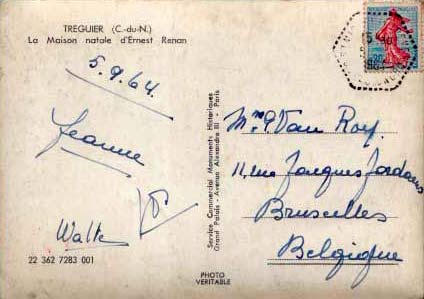 TREGUIER (C.-du-N.)
La Maison natale d'Ernest Renan
5.9.64.
Jeanne
Walter
22 362 7283 001
Service Commercial Monuments Historiques
Grand Palais - Avenue Alexandre III - Paris
PHOTO
VERITABLE
Van Roy.
11, rue Jacques Jordaens
Bruxelles
Belgique